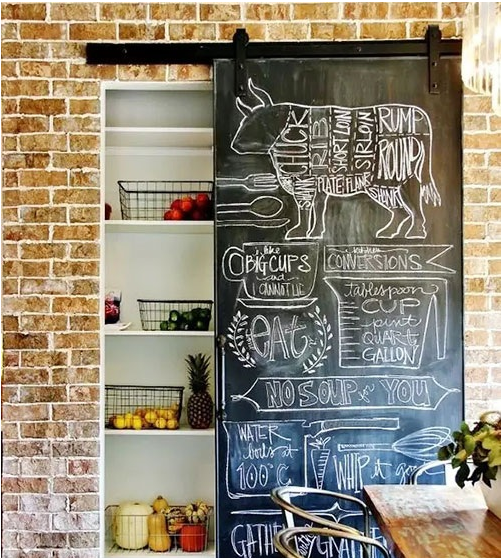 CHUCK RIB SHORT LOIN SIRLOIN RUMP
ROUND
SHANK PLATE FLANK SHANK
I like
BIG CUPS
and
I CANNOT LIE
kitchen
CONVERSIONS
tablespoon
CUP
pint
QUART
GALLON
eat
NO SOUP for YOU
WATER
boils at
100°C
WHIP it good